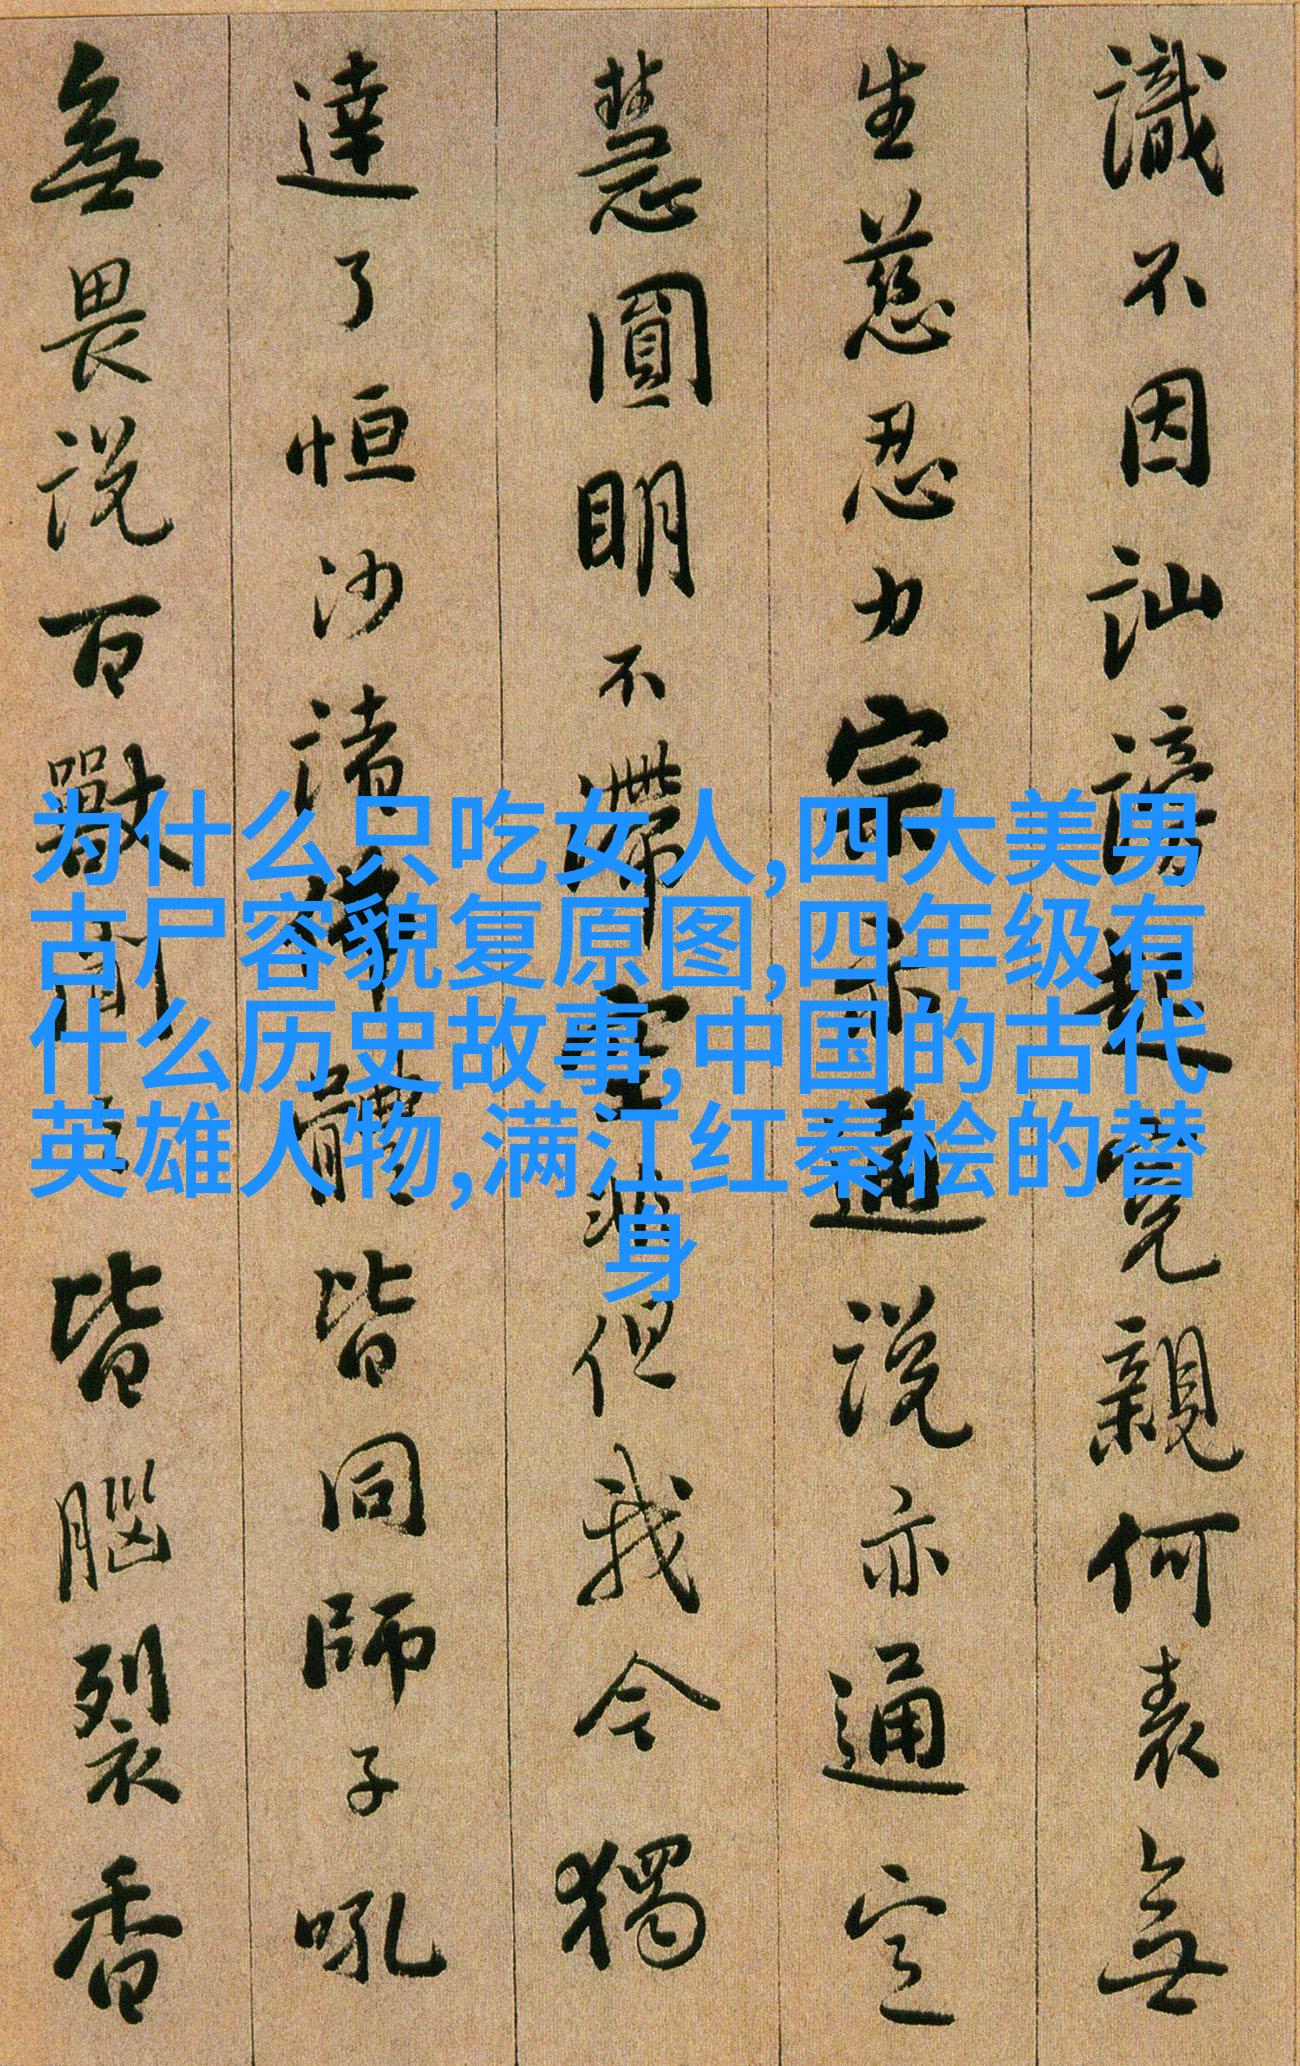 識不因訕謗起冤親何表無
生慈忍力宗亦通說亦通定
慧圓明不滯空非但我今獨
達了恒沙諸佛體皆同師子吼
無畏說百獸聞之皆腦裂香
为什么只吃女人,四大美男
古尸容貌复原图,四年级有
什么历史故事,中国的古代
英雄人物,满江红秦桧的替
身